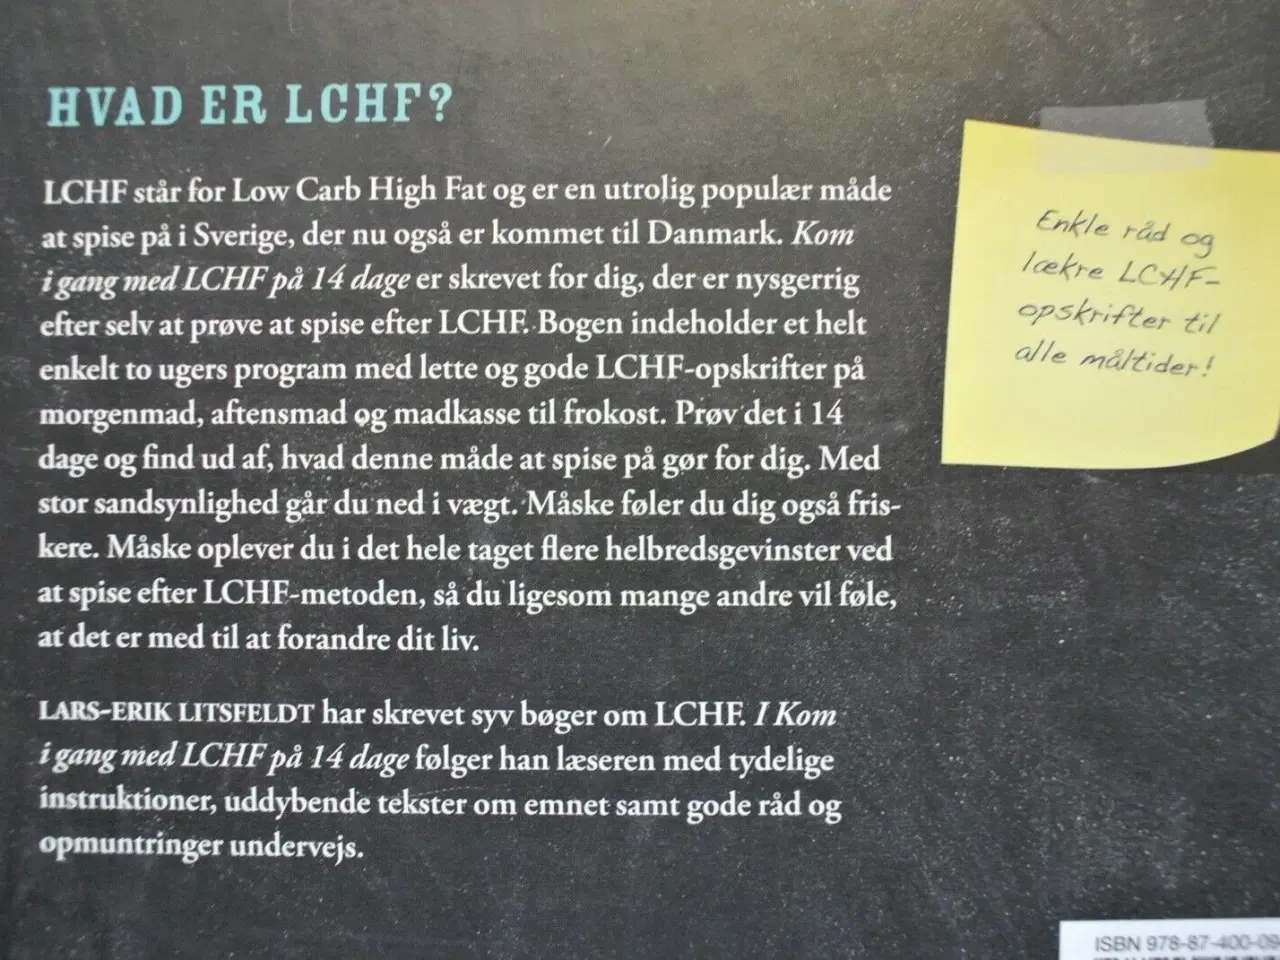 HVAD ER LCHF?
LCHF står for Low Carb High Fat og er en utrolig populær måde
at spise på i Sverige, der nu også er kommet til Danmark. Kom
i gang med LCHF på 14 dage er skrevet for dig, der er nysgerrig
efter selv at prøve at spise efter LCHF. Bogen indeholder et helt
enkelt to ugers program med lette og gode LCHF-opskrifter på
morgenmad, aftensmad og madkasse til frokost. Prøv det i 14
dage og find ud af, hvad denne måde at spise på gør for dig. Med
stor sandsynlighed går du ned i vægt. Måske føler du dig også fris-
kere. Måske oplever du i det hele taget flere helbredsgevinster ved
at spise efter LCHF-metoden, så du ligesom mange andre vil føle,
at det er med til at forandre dit liv.
LARS-ERIK LITSFELDT har skrevet syv bøger om LCHF. I Kom
i gang med LCHF på 14 dage følger han læseren med tydelige
instruktioner, uddybende tekster om emnet samt gode råd og
opmuntringer undervejs.
Enkle råd og
lækre LCHF-
opskrifter til
alle måltider!
ISBN 978-87-400-09